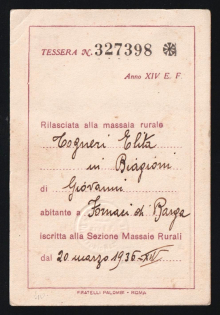 TESSERA N. 327398
Anno XIV E. F.
Rilasciata alla massaia rurale
Togneri Elita
in Biagioni
di Giovanni
abitante a Fornaci di Barga
iscritta alla Sezione Massaie Rurali
dal 20 marzo 1936-XIV
FRATELLI PALOMBI - ROMA